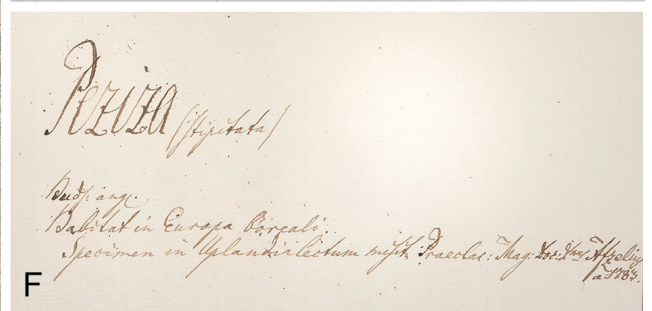 Peziza (stipitata)
Huds: ang.
Habitat in Europa boreali.
Specimen in Uplandia lectum misit Praeclar: Mag: Doc: Dnus Afzelius
a: 1783.
F